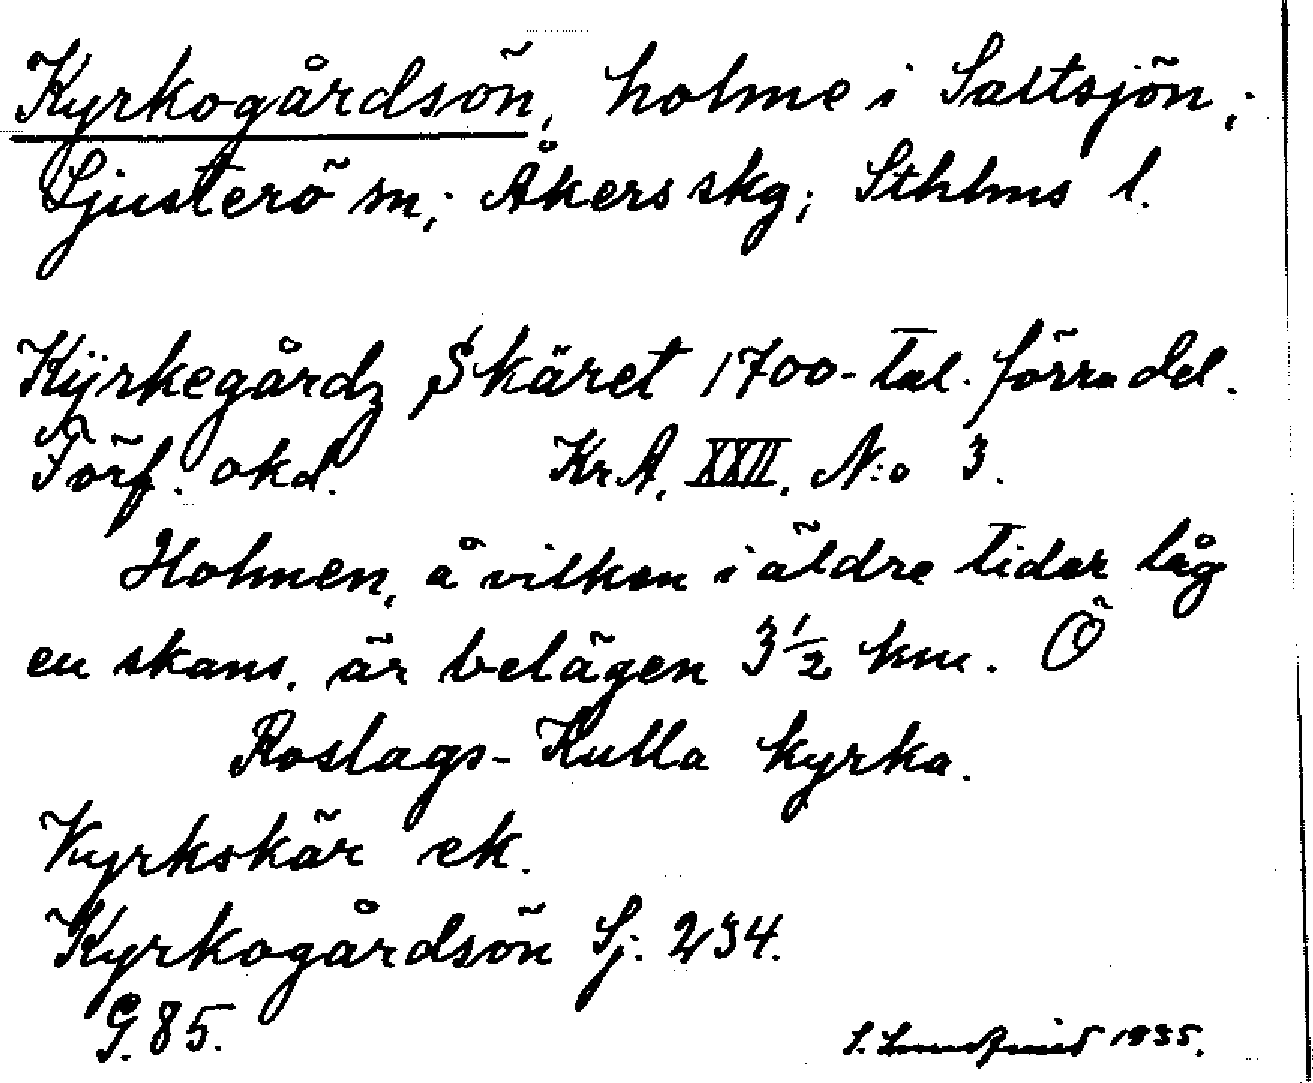 Kyrkogårdsön, holme i Saltsjön;
Ljusterö sn; Åkers skg; Sthlms l.
Kÿrkegårdz Skäret 1700-tal. förra del.
Förf. okd. Kr.A. XXII. N:o 3.
Holmen, å vilken i äldre tider låg
en skans, är belägen 3 1/2 km. Ö
Roslags-Kulla kyrka.
Kyrkskär ek.
Kyrkogårdsön Sj. 234.
G. 85.
1935.